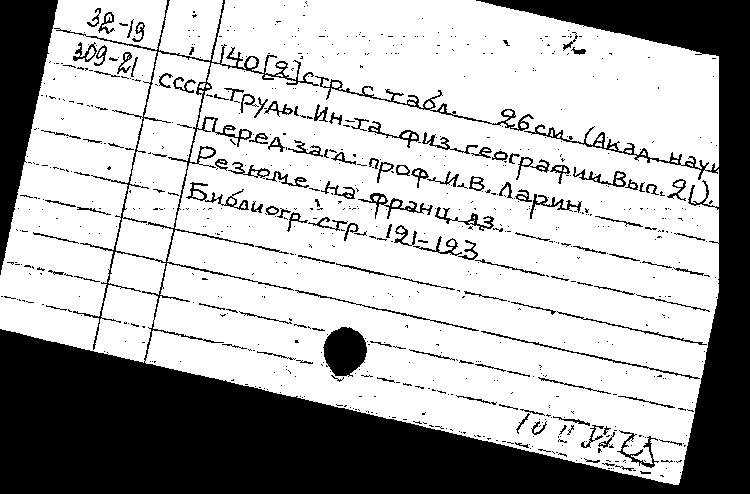 2
32-19
309-21
140[2]стр. с табл. 26см. (Акад. наук
СССР. Труды Ин-та физ. географии. Вып. 21).
Перед загл.: проф. И.В. Ларин.
Резюме на франц. яз.
Библиогр. стр. 121-123.